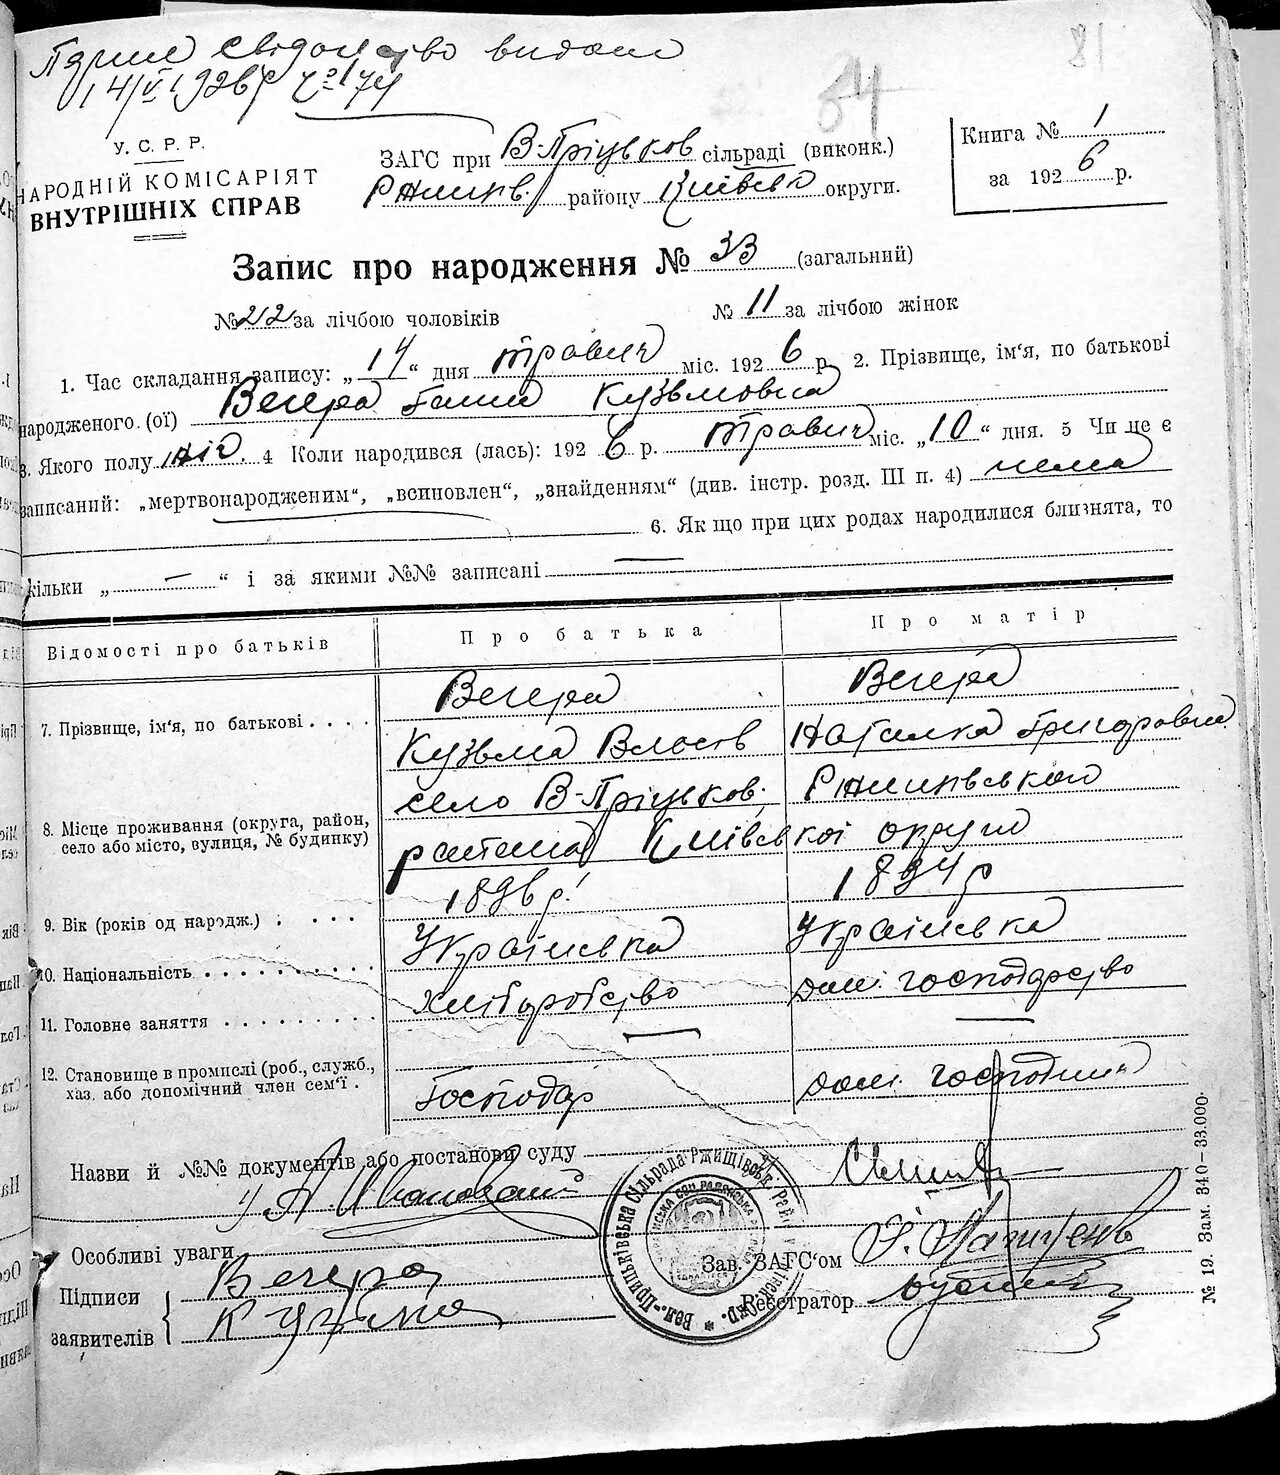 свідоцтво видана
14/V 1926 р № 174
81
84
У. С. Р. Р.
НАРОДНІЙ КОМІСАРІЯТ
ВНУТРІШНІХ СПРАВ
ЗАГС при В-Пріцьков сільраді (виконк.)
Ржищів. району Київськ округи.
Книга № 1
за 1926 р.
Запис про народження № 33 (загальний)
№ 22 за лічбою чоловіків № 11 за лічбою жінок
1. Час складання запису: „14“ дня травня міс. 1926 р. 2. Прізвище, ім‘я, по батькові
народженого (ої) Вечера Ганна Кузьмовна
3. Якого полу жін. 4 Коли народився (лась): 1926 р. травня міс. „10“ дня. 5 Чи це є
записаний: „мертвонародженим“, „всиновлен“, „знайденням“ (див. інстр. розд. III п. 4) нема
6. Якщо при цих родах народилися близнята, то
кільки „ — “ і за якими №№ записані —
Відомості про батьків Про батька Про матір
7. Прізвище, ім‘я, по батькові Вечера Вечера
Кузьма Власів Наталка Григоровна
8. Місце проживання (округа, район, село або місто, вулиця, № будинку) село В-Пріцьков; Ржищівського
района Київської округи
9. Вік (років од народж.) 1896 р. 1894 р
10. Національність Українська Українська
11. Головне заняття хліборобство дом. господарство
12. Становище в промислі (роб., служб., хаз. або допомічний член сем‘ї. Господар дом. господиня
Назви й №№ документів або постанови суду
Особливі уваги
Підписи заявителів Вечера
Кузьма
Зав. ЗАГС‘ом
Реєстратор
Вел.-Прицьківська Сільрада Ржищівськ. Рай
№ 19. Зам. 340—33.000.